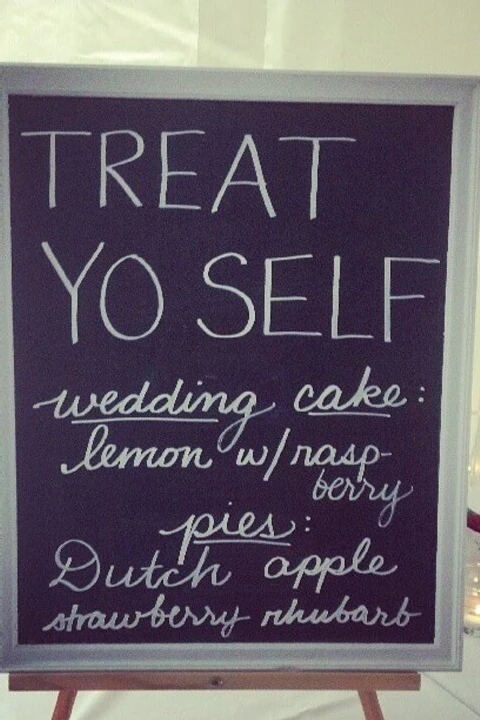 TREAT
YO SELF
wedding cake:
lemon w/rasp-
berry
pies:
Dutch apple
strawberry rhubarb